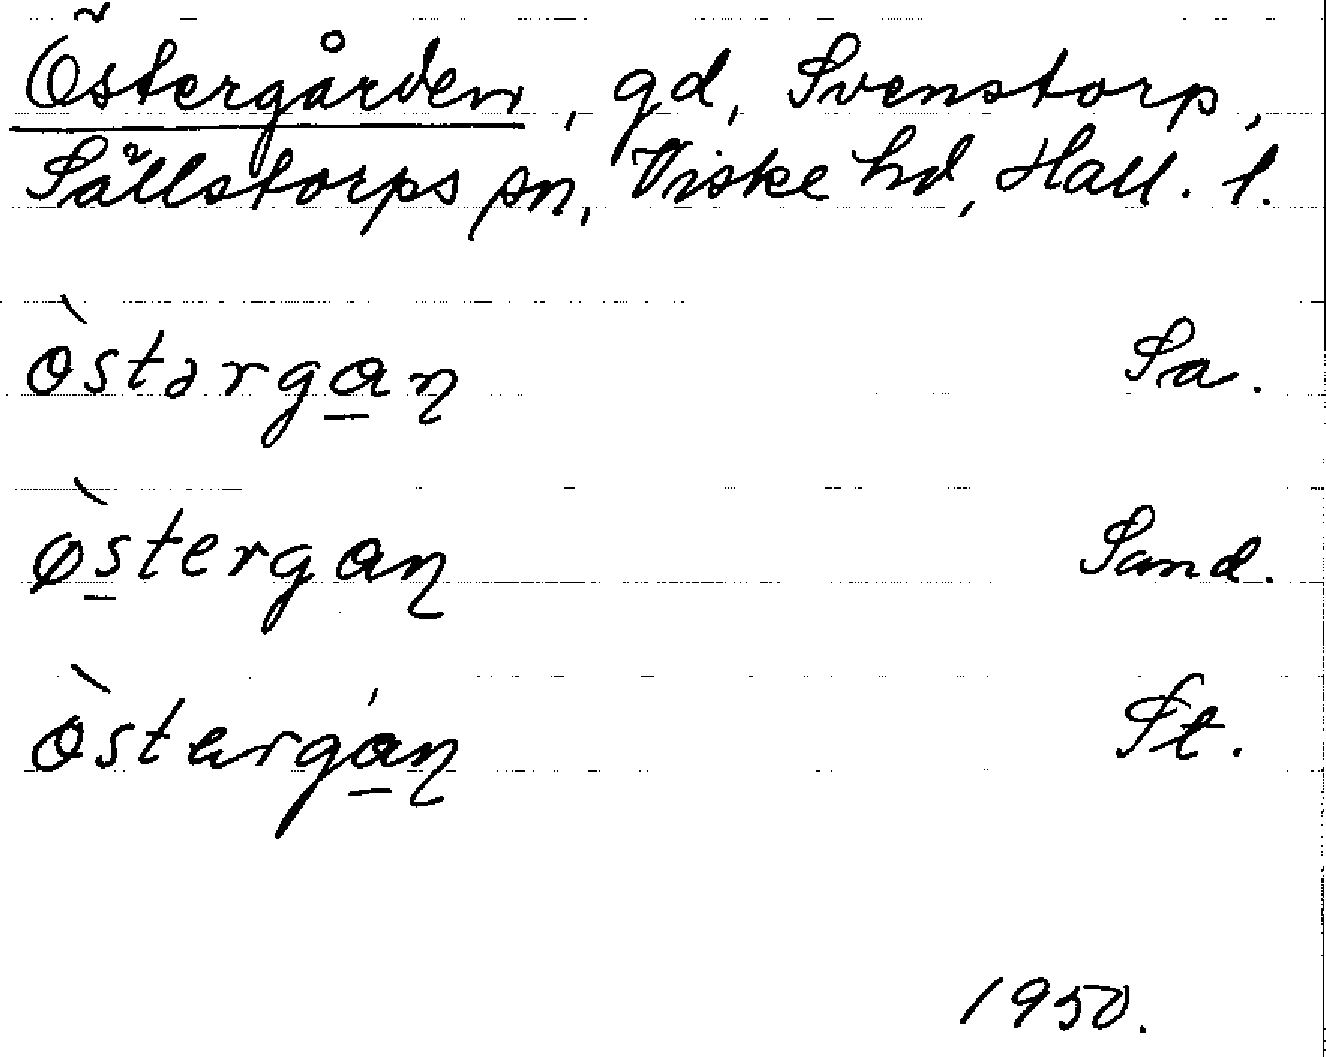 Östergården, gd, Svenstorp,
Sällstorps sn, Viske hd, Hall. l.
òstərga̲n Sa.
øs̲̀tergan Sand.
òstərgá̲n St.
1950.